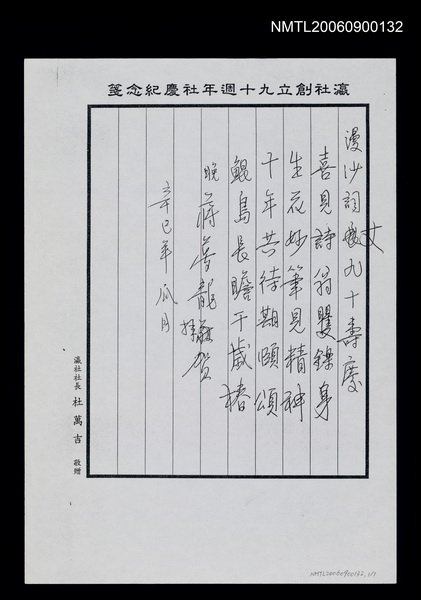 NMTL20060900132
瀛社創立九十週年社慶紀念箋
漫沙詞丈九十壽慶
喜見詩翁矍鑠身
生花妙筆見精神
十年共待期頤頌
鯤島長瞻千歲椿
晚 蔣孟龍 拜賀
辛巳年瓜月
瀛社社長 杜萬吉 敬贈
NMTL20060900132, 1/1